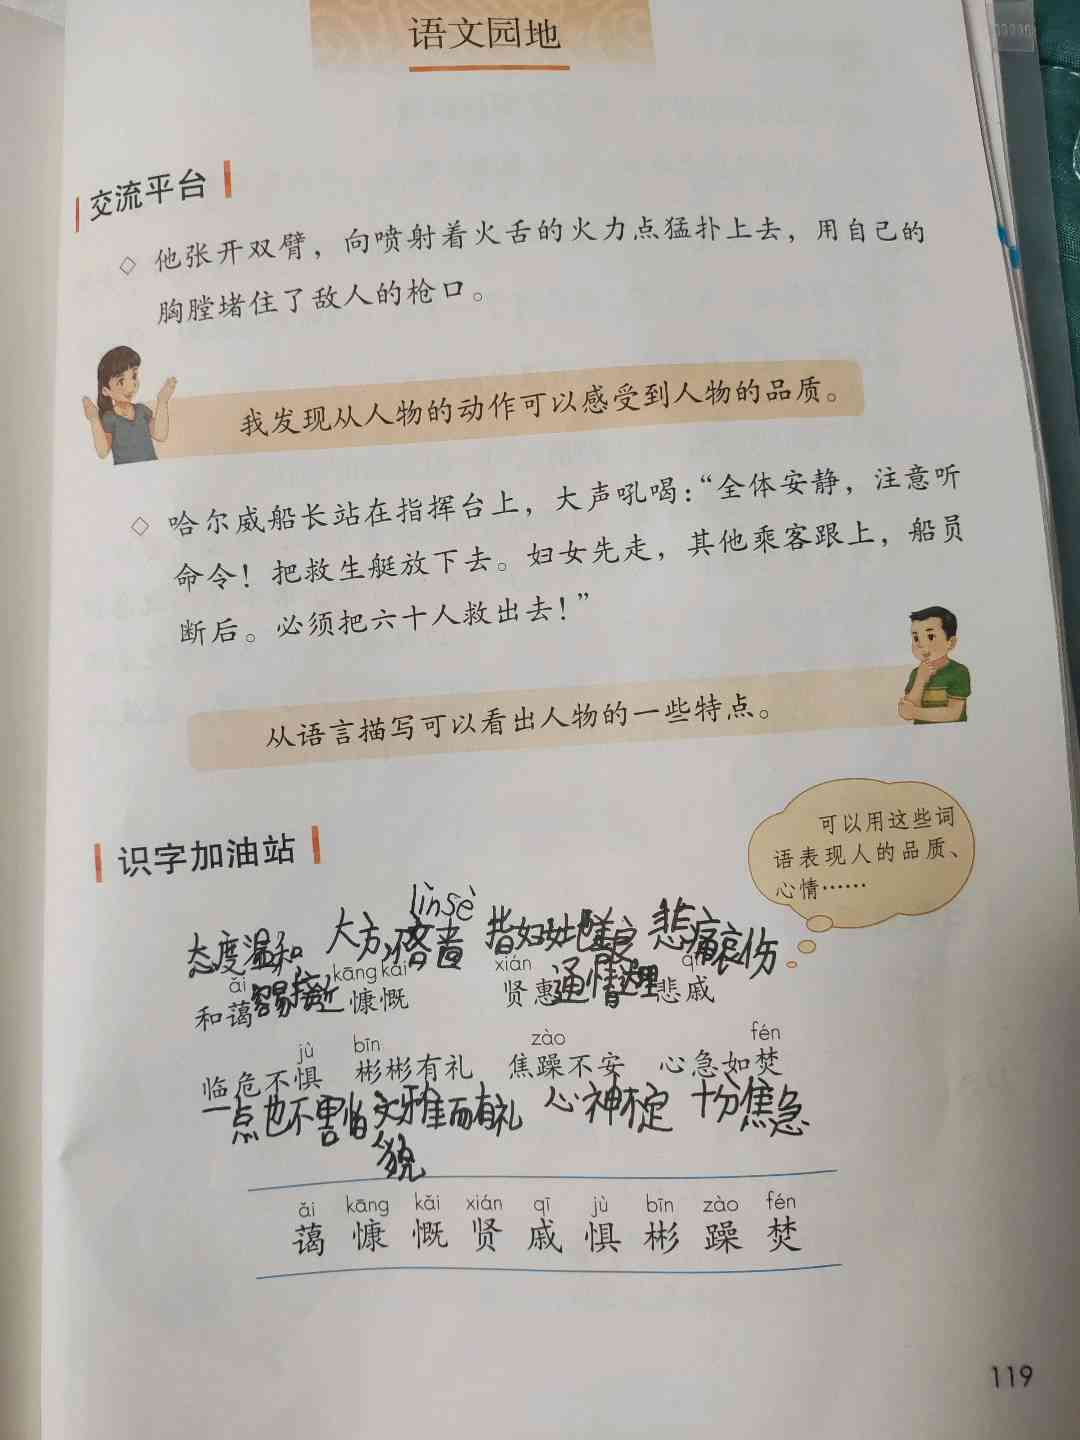 语文园地
交流平台
◇ 他张开双臂，向喷射着火舌的火力点猛扑上去，用自己的
胸膛堵住了敌人的枪口。
我发现从人物的动作可以感受到人物的品质。
◇ 哈尔威船长站在指挥台上，大声吼喝：“全体安静，注意听
命令！把救生艇放下去。妇女先走，其他乘客跟上，船员
断后。必须把六十人救出去！”
从语言描写可以看出人物的一些特点。
可以用这些词
语表现人的品质、
心情……
识字加油站
lìnsè
态度温和 大方,不吝啬 指妇女 悲痛哀伤
容易接近 通情达理
ǎi kāng kǎi xián qī
和蔼 慷慨 贤惠 悲戚
jù bīn zào fén
临危不惧 彬彬有礼 焦躁不安 心急如焚
一点也不害怕 文雅而有礼 心神不定 十分焦急
貌
ǎi kāng kǎi xián qī jù bīn zào fén
蔼 慷 慨 贤 戚 惧 彬 躁 焚
119